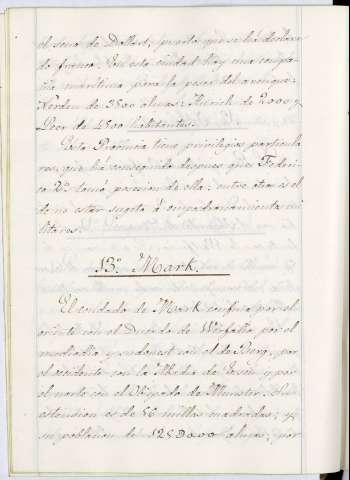 el seno de Dollart; puerto que se ha declara-
do franco. En esta ciudad hay una compa-
ñia maritima para la pesca del arenque:
Norden de 3500 almas: Aurich de 2000 y
Leer de 4500 habitantes.
Esta Provincia tiene privilegios particula-
res, que ha conseguido despues que Federi-
co 2º tomó posesion de ella; entre otros es el
de no estar sugeta á empadronamientos mi-
litares.
13º Mark.
El condado de Mark confina por el
oriente con el Ducado de Wesfalia por el
mediodia y sudoest con el de Berg, por
el occidente con la Abadia de Essen y por
el norte con el Obispado de Munster. Su
estension es de 56 millas cuadradas; y
su poblacion de 125000 almas; por